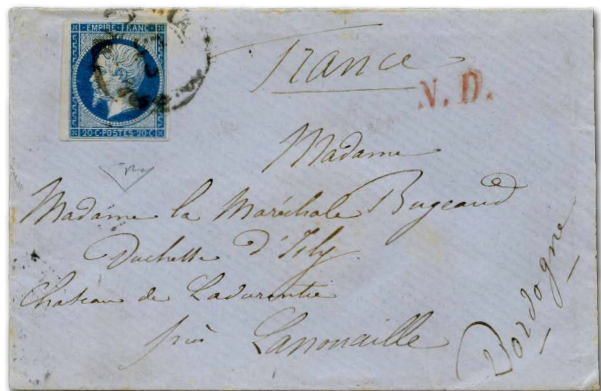 EMPIRE FRANC.
20 C. POSTES 20 C.
France
N. D.
Madame
Madame la Maréchale Bugeaud
Duchesse d'Isly
Chateau de Ladurantie
près Lanouaille
Dordogne